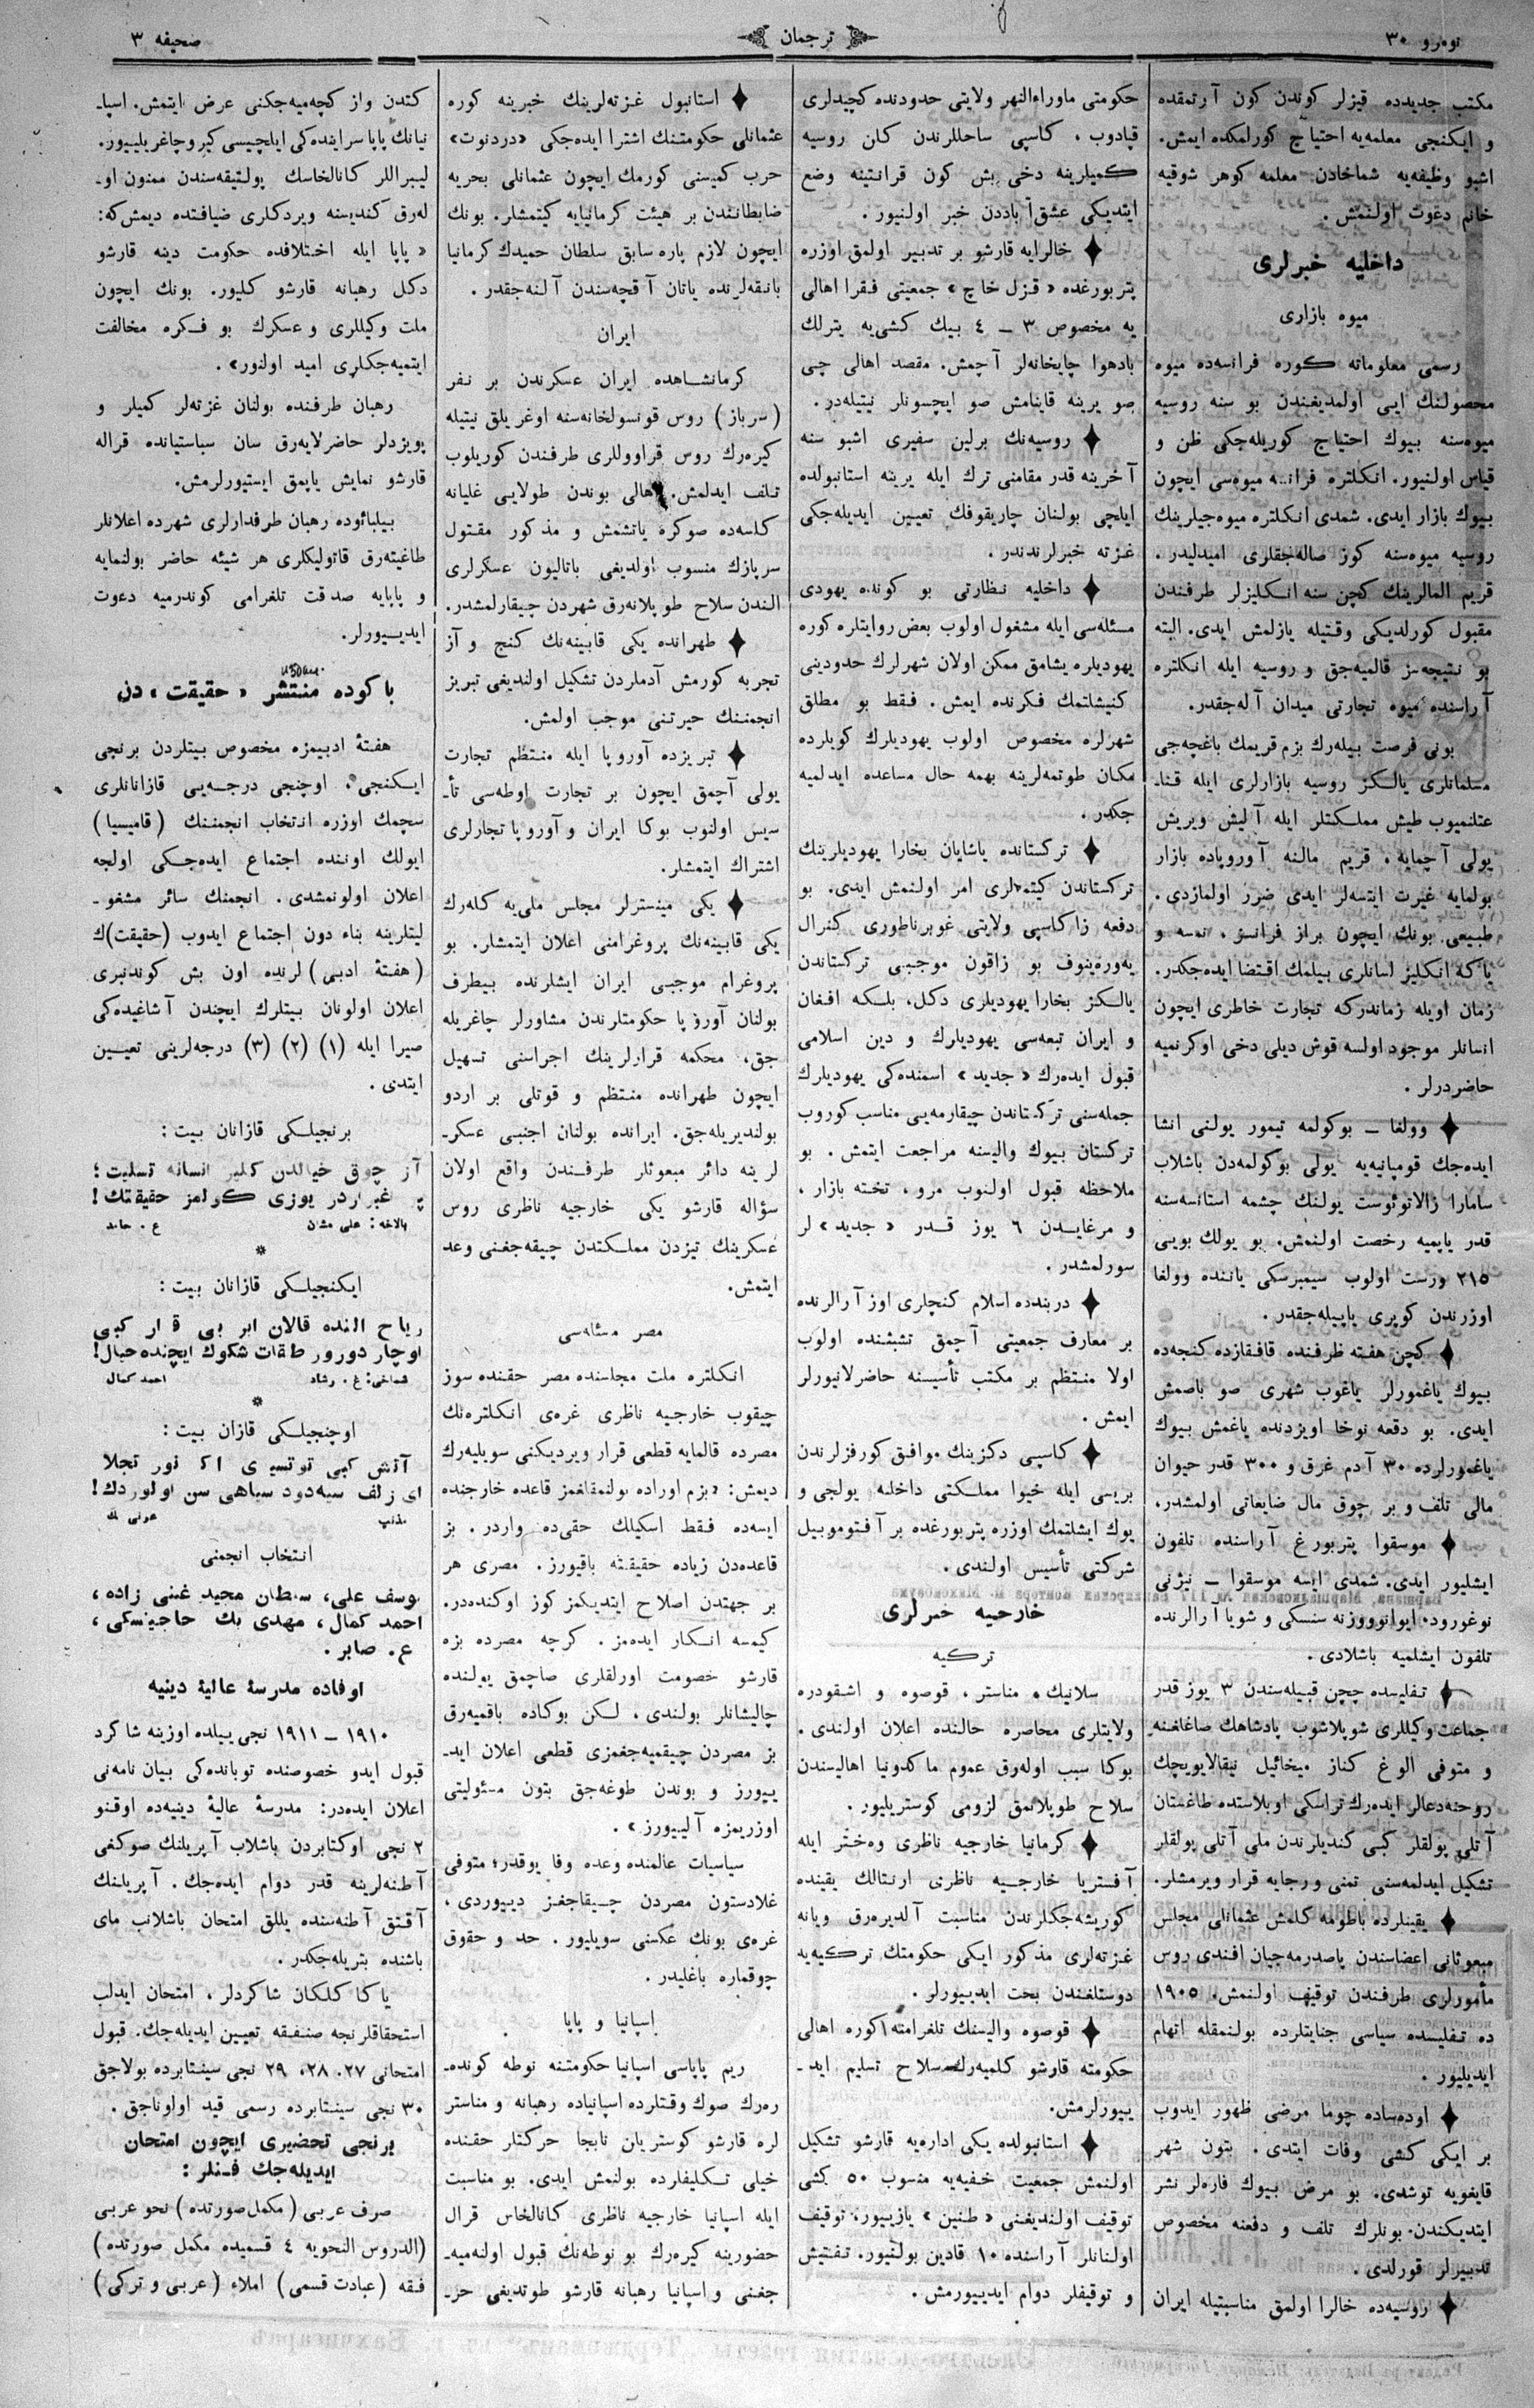 نومرو ۳۰
ترجمان
صحیفه ۳
مكتب جدیدده قیزلر كوندن كون آرتمقده
و ایكنجی معلمه‌یه احتیاج كورلمكده ایمش.
اشبو وظیفه‌یه شماخادن معلمه كوهر شوقیه
خانم دعوت اولنمش.
داخلیه خبرلری
میوه بازاری
رسمی معلوماته كوره فرانسه‌ده میوه
محصولنك ایی اولمدیغندن بو سنه روسیه
میوه‌سنه بیوك احتیاج كوریله‌جكی ظن و
قیاس اولنیور. انكلتره فرانسه میوه‌سی ایچون
بیوك بازار ایدی. شمدی انكلتره میوه‌جیلرینك
روسیه میوه‌سنه كوز صاله‌جقلری امیدلیدر.
قریم المالرینك كچن سنه انكلیزلر طرفندن
مقبول كورلدیكی وقتیله یازلمش ایدی. البته
بو نتیجه‌سز قالمیه‌جق و روسیه ایله انكلتره
آراسنده میوه تجارتی میدان آله‌جقدر.
بونی فرصت بیله‌رك بزم قریمك باغچه‌جی
مسلمانلری یالكز روسیه بازارلری ایله قنا-
عتلنمیوب طیش مملكتلر ایله آلیش ویریش
یولی آچمایه، قریم مالنه آوروپاده بازار
بولمایه غیرت ایتسه‌لر ایدی ضرر اولمازدی.
طبیعی بونك ایچون براز فرانسز، نمسه و
یاكه انكلیز لسانلری بیلمك اقتضا ایده‌جكدر.
زمان اویله زماندركه تجارت خاطری ایچون
انسانلر موجود اولسه قوش دیلی دخی اوكرنمیه
حاضردرلر.
وولغا ــ بوكولمه تیمور یولنی انشا
ایده‌جك قومپانیه‌یه یولی بوكولمه‌دن باشلاب
سامارا زالاتوئوست یولنك چشمه استانسه‌سنه
قدر یاپمیه رخصت اولنمش. بو یولك بویی
۲۱۵ ورست اولوب سیمبرسكی یاننده وولغا
اوزرندن كوپری یاپیله‌جقدر.
كچن هفته ظرفنده قافقازده كنجه‌ده
بیوك یاغمورلر یاغوب شهری صو باصمش
ایدی. بو دفعه نوخا اویزدنده یاغمش بیوك
یاغمورلرده ۳۰ آدم غرق و ۳۰۰ قدر حیوان
مالی تلف و بر چوق مال ضایعاتی اولمشدر.
موسقوا پتربورغ آراسنده تلفون
ایشلیور ایدی. شمدی ایسه موسقوا ــ نیژنی
نوغورود. ایوانووزنه سنسكی و شویا آرالرنده
تلفون ایشلمیه باشلادی.
تفلیسده چچن قبیله‌سندن ۳ یوز قدر
جماعت وكیللری شوپلاشوب پادشاهك صاغلغنه
و متوفی الوغ كناز میخائیل نیقالایویچك
روحنه دعالر ایده‌رك تراسكی اوبلاستده طاغستان
آتلی پولقلر كبی كندیلرندن ملی آتلی پولقلر
تشكیل ایدلمه‌سنی تمنی و رجایه قرار ویرمشلر.
یقینلرده باطومه كلمش عثمانلی مجلس
مبعوثانی اعضاسندن پاصدرمه‌جیان افندی روس
مأمورلری طرفندن توقیف اولنمش. ۱۹۰۵
ده تفلیسده سیاسی جنایتلرده بولنمقله اتهام
ایدیلیور.
اوده‌ساده چوما مرضی ظهور ایدوب
بر ایكی كشی وفات ایتدی. بتون شهر
قایغویه توشدی. بو مرض بیوك فاره‌لر نشر
ایتدیكندن بونلرك تلف و دفعنه مخصوص
تدبیرلر قورلدی.
روسیه‌ده خالرا اولمق مناسبتیله ایران
حكومتی ماوراءالنهر ولایتی حدودنده كچیدلری
قپادوب، كاسپی ساحللرندن كلن روسیه
كمیلرینه دخی بش كون قرانتینه وضع
ایتدیكی عشق‌آباددن خبر اولنیور.
خالرایه قارشو بر تدبیر اولمق اوزره
پتربورغده «قزل خاچ» جمعیتی فقرا اهالی
یه مخصوص ۳ ــ ٤ بیك كشی‌یه یترلك
بادهوا چایخانه‌لر آچمش. مقصد اهالی چی
صو یرینه قاینامش صو ایچسونلر نیتیله‌در.
روسیه‌نك برلین سفیری اشبو سنه
آخرینه قدر مقامنی ترك ایله یرینه استانبولده
ایلچی بولنان چاریقوفك تعیین ایدیله‌جكی
غزته خبرلرندندر.
داخلیه نظارتی بو كونده یهودی
مسئله‌سی ایله مشغول اولوب بعض روایتلره كوره
یهودیلره یشامق ممكن اولان شهرلرك حدودینی
كنیشلتمك فكرنده ایمش. فقط بو مطلق
شهرلره مخصوص اولوب یهودیلرك كویلرده
مكان طوتمه‌لرینه بهمه حال مساعده ایدلمیه
جكدر.
تركستانده یاشایان بخارا یهودیلرینك
تركستاندن كیتمه‌لری امر اولنمش ایدی. بو
دفعه زاكاسپی ولایتی غوبرناطوری كنرال
یه‌وره‌ینوف بو زاقون موجبی تركستاندن
یالكز بخارا یهودیلری دكل، بلكه افغان
و ایران تبعه‌سی یهودیلرك و دین اسلامی
قبول ایده‌رك «جدید» اسمنده‌كی یهودیلرك
جمله‌سنی تركستاندن چیقارمه‌یی مناسب كوروب
تركستان بیوك والیسنه مراجعت ایتمش. بو
ملاحظه قبول اولنوب مرو، تخته بازار،
و مرغابدن ٦ یوز قدر «جدید» لر
سورلمشدر.
دربندده اسلام كنچلری اوز آرالرنده
بر معارف جمعیتی آچمق تشبثنده اولوب
اولا منتظم بر مكتب تأسیسنه حاضرلانیورلر
ایمش.
كاسپی دكزینك موافق كورفزلرندن
بریسی ایله خیوا مملكتی داخلنه یولجی و
یوك ایشلتمك اوزره پتربورغده بر آفتوموبیل
شركتی تأسیس اولندی.
خارجیه خبرلری
تركیه
سلانیك، مناستر، قوصوه و اشقودره
ولایتلری محاصره حالنده اعلان اولندی.
بوكا سبب اوله‌رق عموم ماكدونیا اهالیسندن
سلاح طوپلانمق لزومی كوستریلیور.
كرمانیا خارجیه ناظری وه‌ختر ایله
آفستریا خارجیه ناظری ارنتالك یقینده
كوریشه‌جكلرندن مناسبت آلدیره‌رق ویانه
غزته‌لری مذكور ایكی حكومتك تركیه‌یه
دوستلغندن بحث ایدییورلر.
قوصوه والیسنك تلغرامنه كوره اهالی
حكومته قارشو كلمیه‌رك سلاح تسلیم اید-
ییورلرمش.
استانبولده یكی اداره‌یه قارشو تشكیل
اولنمش جمعیت خفیه‌یه منسوب ۵۰ كشی
توقیف اولندیغنی «طنین» یازییور. توقیف
اولنانلر آراسنده ۱۰ قادین بولنیور. تفتیش
و توقیفلر دوام ایدییورمش.
استانبول غزته‌لرینك خبرینه كوره
عثمانلی حكومتنك اشترا ایده‌جكی «دردنوت»
حرب كمیسنی كورمك ایچون عثمانلی بحریه
ضابطانندن بر هیئت كرمانیایه كیتمشلر. بونك
ایچون لازم پاره سابق سلطان حمیدك كرمانیا
بانقه‌لرنده یاتان آقچه‌سندن آلنه‌جقدر.
ایران
كرمانشاهده ایران عسكرندن بر نفر
(سرباز) روس قونسولخانه‌سنه اوغریلق نیتیله
كیره‌رك روس قراووللری طرفندن كوریلوب
تلف ایدلمش. اهالی بوندن طولایی غلیانه
كلسه‌ده صوكره یاتشمش و مذكور مقتول
سربازك منسوب اولدیغی باتالیون عسكرلری
الندن سلاح طوپلانه‌رق شهردن چیقارلمشدر.
طهرانده یكی قابینه‌نك كنج و آز
تجربه كورمش آدملردن تشكیل اولندیغی تبریز
انجمننك حیرتنی موجب اولمش.
تبریزده آوروپا ایله منتظم تجارت
یولی آچمق ایچون بر تجارت اوطه‌سی تأ-
سیس اولنوب بوكا ایران و آوروپا تجارلری
اشتراك ایتمشلر.
یكی مینسترلر مجلس ملی‌یه كله‌رك
یكی قابینه‌نك پروغرامنی اعلان ایتمشلر. بو
پروغرام موجبی ایران ایشلرنده بیطرف
بولنان آوروپا حكومتلرندن مشاورلر چاغریله
جق، محكمه قرارلرینك اجراسنی تسهیل
ایچون طهرانده منتظم و قوتلی بر اردو
بولندیریله‌جق. ایرانده بولنان اجنبی عسكر-
لرینه دائر مبعوثلر طرفندن واقع اولان
سؤاله قارشو یكی خارجیه ناظری روس
عسكرینك تیزدن مملكتدن چیقه‌جغنی وعد
ایتمش.
مصر مسئله‌سی
انكلتره ملت مجلسنده مصر حقنده سوز
چیقوب خارجیه ناظری غره‌ی انكلتره‌نك
مصرده قالمایه قطعی قرار ویردیكنی سویلیه‌رك
دیمش: «بزم اوراده بولنمقلغمز قاعده خارجنده
ایسه‌ده فقط اسكیلك حقی‌ده واردر. بز
قاعده‌دن زیاده حقیقته باقیورز. مصری هر
بر جهتدن اصلاح ایتدیكمز كوز اوكنده‌در.
كیمسه انكار ایده‌مز. كرچه مصرده بزه
قارشو خصومت اورلقلری صاچمق یولنده
چالیشانلر بولندی. لكن بوكاده باقمیه‌رق
بز مصردن چیقمیه‌جغمزی قطعی اعلان اید-
ییورز و بوندن طوغه‌جق بتون مسئولیتی
اوزریمزه آلییورز».
سیاسیات عالمنده وعده وفا یوقدر؛ متوفی
غلادستون مصردن چیقاجغز دییوردی،
غره‌ی بونك عكسنی سویلیور. حد و حقوق
چوقماره باغلیدر.
اسپانیا و پاپا
ریم پاپاسی اسپانیا حكومتنه نوطه كونده-
ره‌رك صوك وقتلرده اسپانیاده رهبانه و مناستر
لره قارشو كوستریلن نابجا حركتلر حقنده
خیلی تكلیفلرده بولنمش ایدی. بو مناسبت
ایله اسپانیا خارجیه ناظری كانالخاس قرال
حضورینه كیره‌رك بو نوطه‌نك قبول اولنه‌میه-
جغنی و اسپانیا رهبانه قارشو طوتدیغی حر-
كتدن واز كچه‌میه‌جكنی عرض ایتمش. اسپا-
نیانك پاپا سراینده‌كی ایلچیسی كیرو چاغریلییور.
لیبراللر كانالخاسك پولتیقه‌سندن ممنون او-
له‌رق كندیسنه ویردكلری ضیافتده دیمش‌كه:
«پاپا ایله اختلافده حكومت دینه قارشو
دكل رهبانه قارشو كلیور. بونك ایچون
ملت وكیللری و عسكرك بو فكره مخالفت
ایتمیه‌جكلری امید اولنور».
رهبان طرفنده بولنان غزته‌لر كمیلر و
پویزدلر حاضرلایه‌رق سان سباستیانده قراله
قارشو نمایش یاپمق ایستیورلرمش.
بیلبائوده رهبان طرفدارلری شهرده اعلانلر
طاغیته‌رق قاتولیكلری هر شیئه حاضر بولنمایه
و پاپایه صدقت تلغرامی كوندرمیه دعوت
ایدییورلر.
باكوده منتشر «حقیقت» دن
هفتهٔ ادبیمزه مخصوص بیتلردن برنجی
ایكنجی، اوچنجی درجه‌یی قازانانلری
سچمك اوزره انتخاب انجمننك (قامیسیا)
ایولك اوننده اجتماع ایده‌جكی اولجه
اعلان اولونمشدی. انجمنك سائر مشغو-
لیتلرینه بناء دون اجتماع ایدوب (حقیقت)ك
(هفتهٔ ادبی) لرنده اون بش كوندنبری
اعلان اولونان بیتلرك ایچندن آشاغیده‌كی
صیرا ایله (۱) (۲) (۳) درجه‌لرینی تعیین
ایتدی.
برنجیلكی قازانان بیت:
آز چوق خیالدن كلیر انسانه تسلیت؛
غبراردر یوزی كولمز حقیقتك!
بالاخه: علی مشان ع. حامد
*
ایكنجیلكی قازانان بیت:
ریاح النده قالان ابر بی قرار كبی
اوچار دورور طبقات شكوك ایچنده خیال!
شماخی: غ. رشاد احمد كمال
*
اوچنجیلكی قازان بیت:
آتش كبی توتسیدی اكر نور تجلا
ای زلف سیه‌دود سیاهی سن اولوردك!
مذنب عونی بك
انتخاب انجمنی
یوسف علی، سلطان مجید غنی زاده،
احمد كمال، مهدی بك حاجینسكی،
ع. صابر.
اوفاده مدرسهٔ عالیهٔ دینیه
۱۹۱۰ ــ ۱۹۱۱ نجی ییلده اوزینه شاكرد
قبول ایدو خصوصنده توبانده‌كی بیان نامه‌نی
اعلان ایده‌در: مدرسهٔ عالیهٔ دینیه‌ده اوقنو
۲ نجی اوكتابردن باشلاب آپریلنك صوكغی
آطنه‌لرینه قدر دوام ایده‌جك. آپریلنك
آقتق آطنه‌سنده ییللق امتحان باشلانب مای
باشنده بتریله‌جكدر.
یاكا كلكان شاكردلر، امتحان ایدلب
استحقاقلرنجه صنفقه تعیین ایدیله‌جك. قبول
امتحانی ۲۷، ۲۸، ۲۹ نجی سینتابرده بولاجق
۳۰ نجی سینتابرده رسمی قید اولوناجق.
برنجی تحضیری ایچون امتحان
ایدیله‌جك فنلر:
صرف عربی (مكمل صورتده) نحو عربی
(الدروس النحویه ٤ قسمیده مكمل صورتده)
فقه (عبادت قسمی) املاء (عربی و تركی)